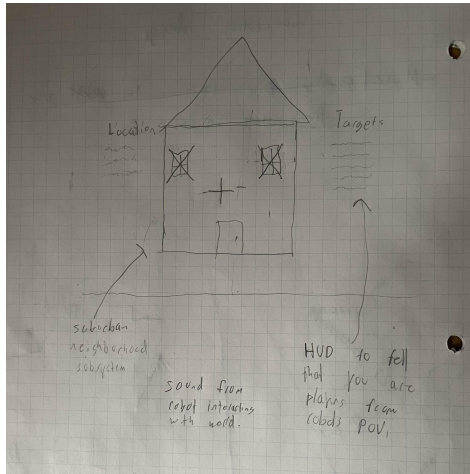 Location
Targets
suburban
neighborhood
subsystem
sound from
robot interacting
with world.
HUD to tell
that you are
playing from
robots POV.